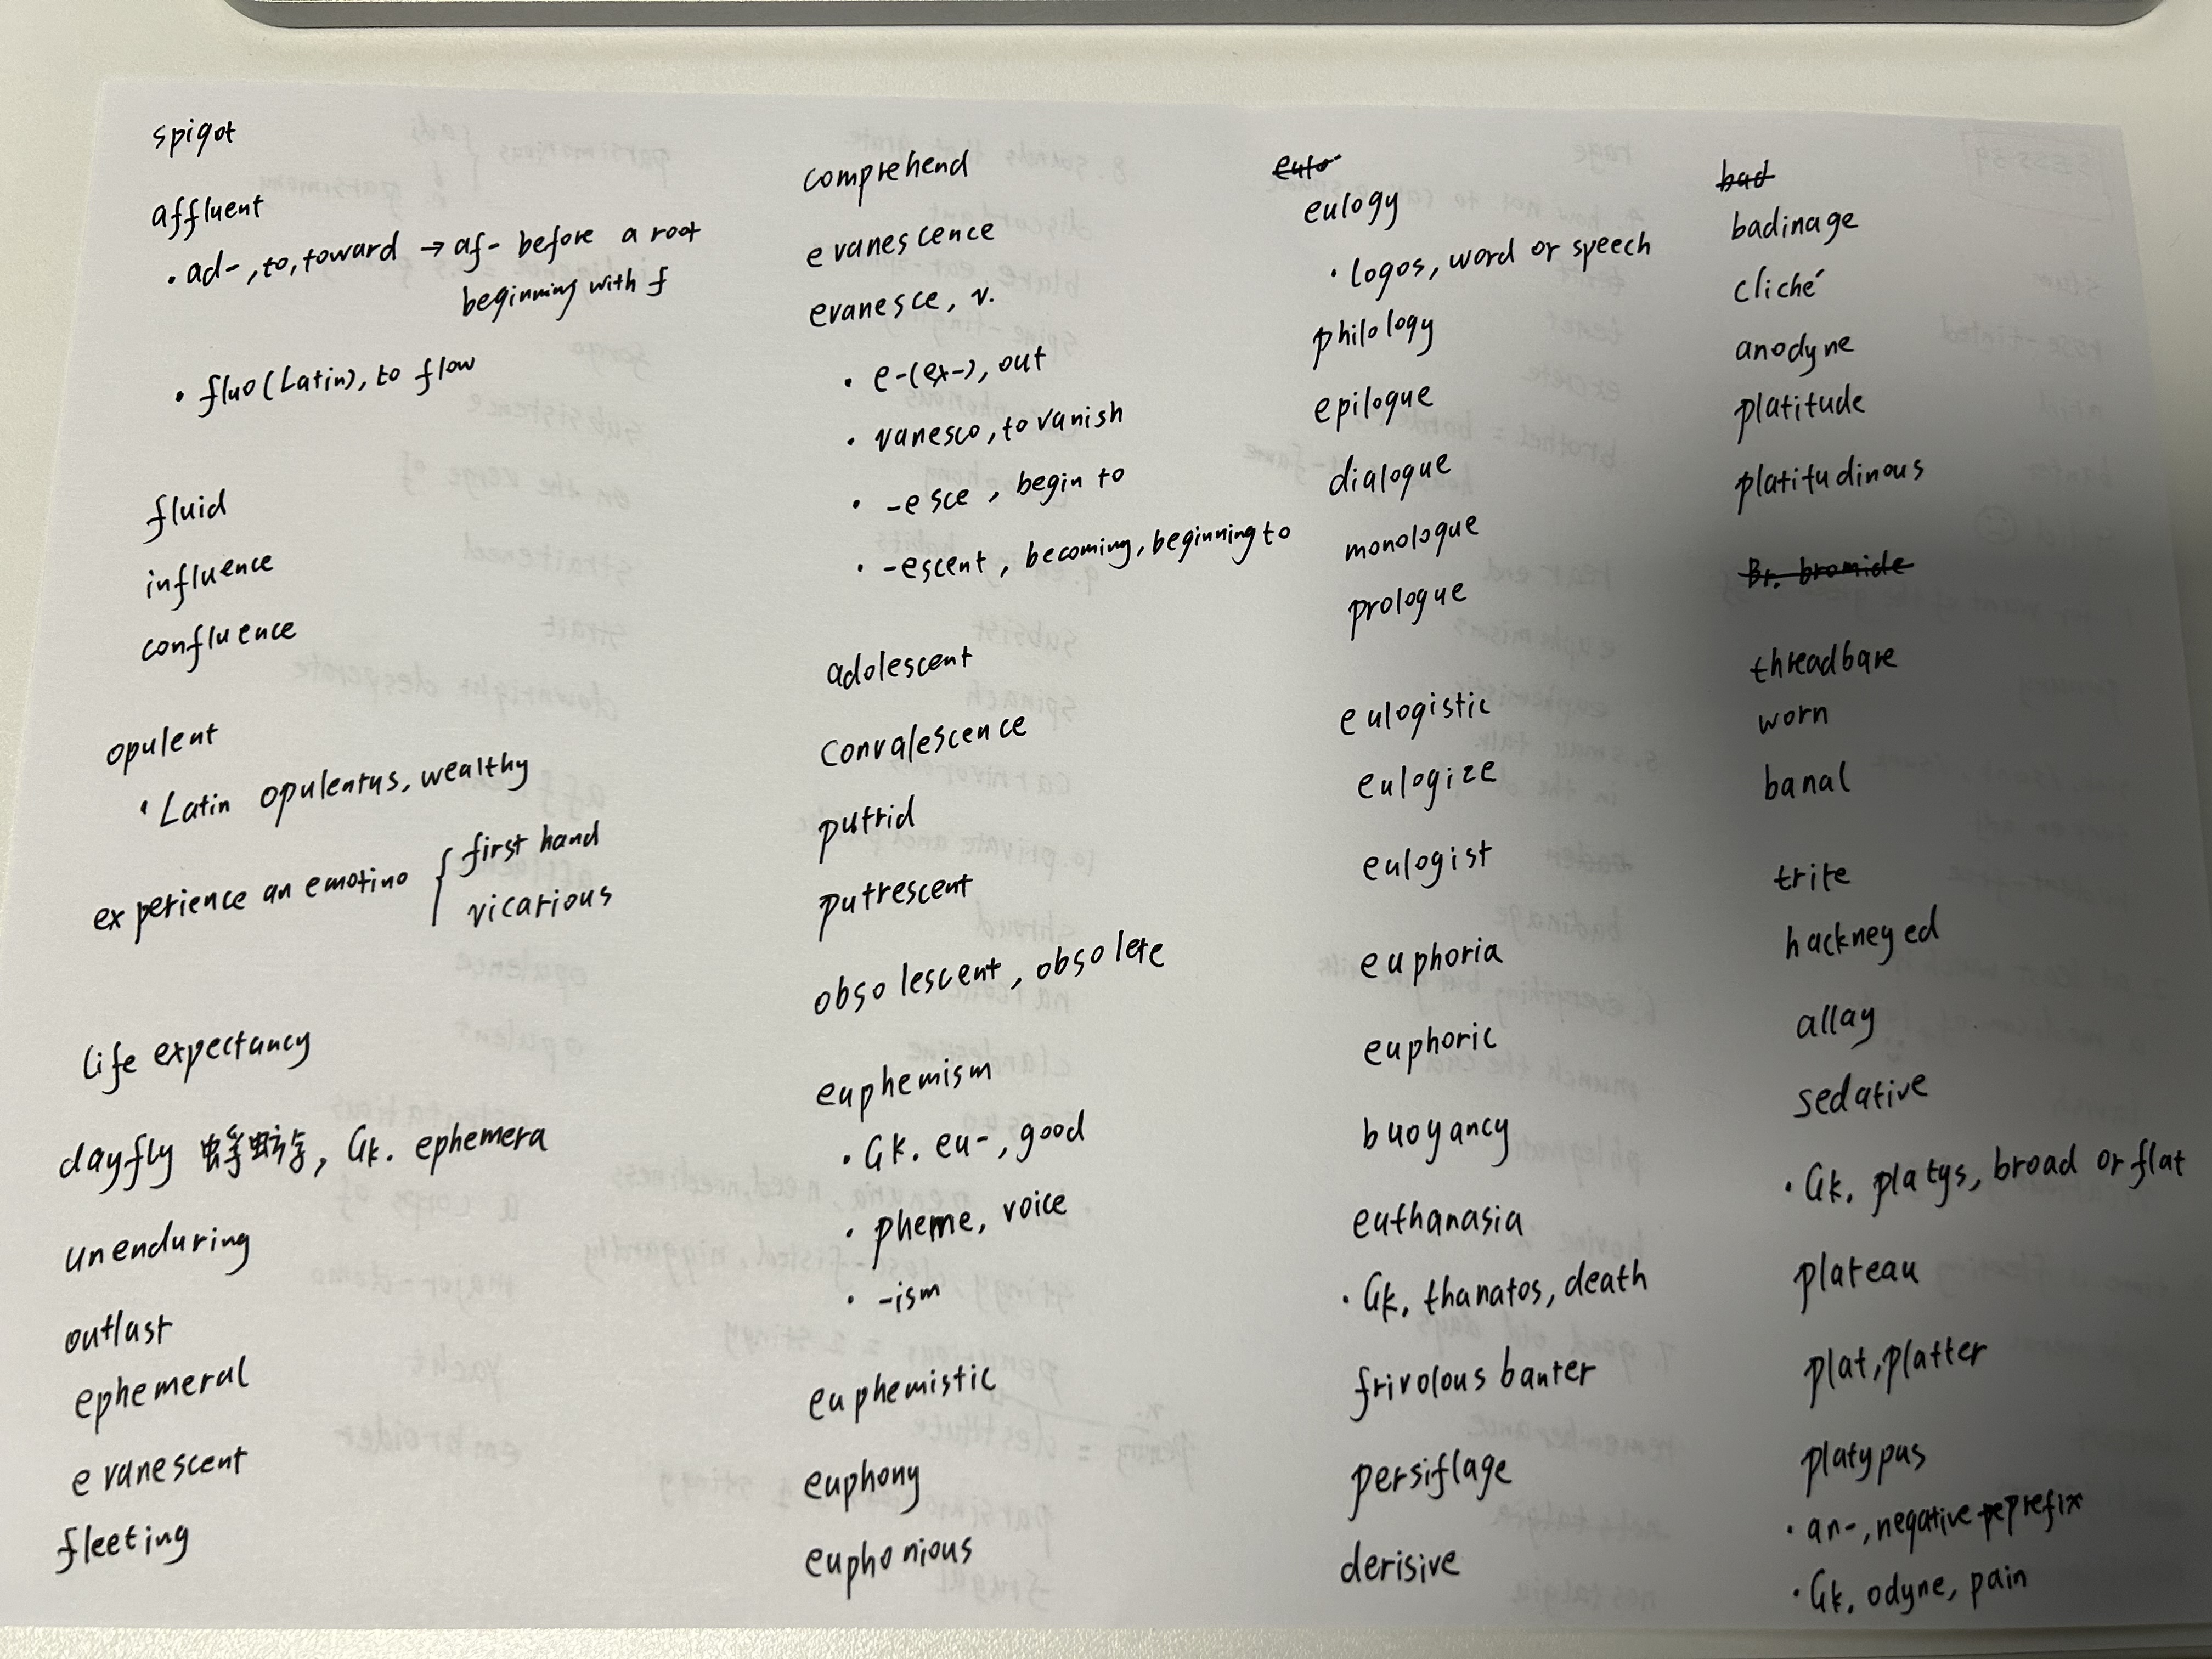 spigot
affluent
• ad-, to, toward → af- before a root
beginning with f
• fluo (Latin), to flow
fluid
influence
confluence
opulent
• Latin opulentus, wealthy
experience an emotino { first hand
vicarious
life expectancy
dayfly 蜉蝣, Gk. ephemera
unenduring
outlast
ephemeral
evanescent
fleeting
comprehend
evanescence
evanesce, v.
• e-(ex-), out
• vanesco, to vanish
• -esce, begin to
• -escent, becoming, beginning to
adolescent
convalescence
putrid
putrescent
obsolescent, obsolete
euphemism
• Gk. eu-, good
• pheme, voice
• -ism
euphemistic
euphony
euphonious
eulogy
• logos, word or speech
philology
epilogue
dialogue
monologue
prologue
eulogistic
eulogize
eulogist
euphoria
euphoric
buoyancy
euthanasia
• Gk. thanatos, death
frivolous banter
persiflage
derisive
bad
badinage
cliché
anodyne
platitude
platitudinous
Br. bromide
threadbare
worn
banal
trite
hackneyed
allay
sedative
• Gk. platys, broad or flat
plateau
plat, platter
platypus
• an-, negative prefix
• Gk. odyne, pain